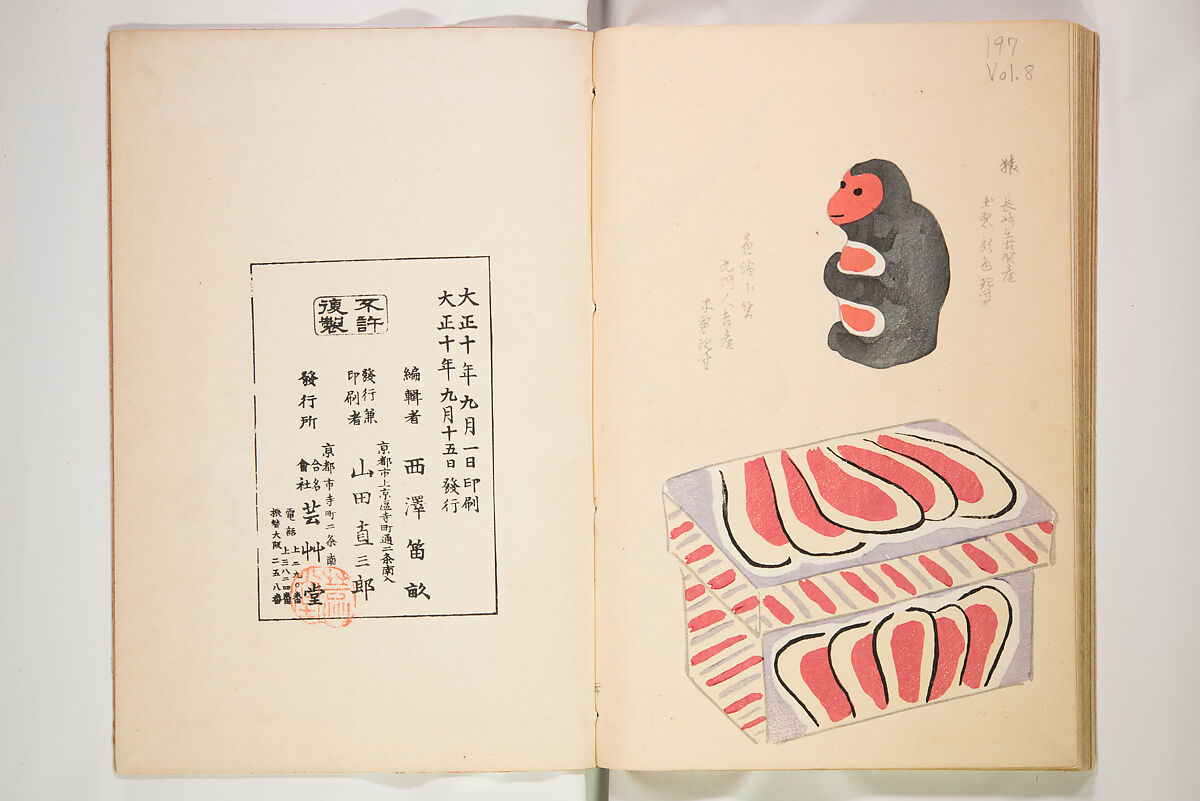 197
Vol.8
猿
長崎在古賀産
土製彩色現寸
色繪小筥
九州人吉産
木製現寸
大正十年九月一日印刷
大正十年九月十五日發行
不許
複製
編輯者 西澤笛畝
京都市上京區寺町通二条南入
發行兼
印刷者 山田直三郎
京都市寺町二条南
發行所 合名會社 芸艸堂
電話 上二九〇番
上三八二四番
振替大阪二五八番